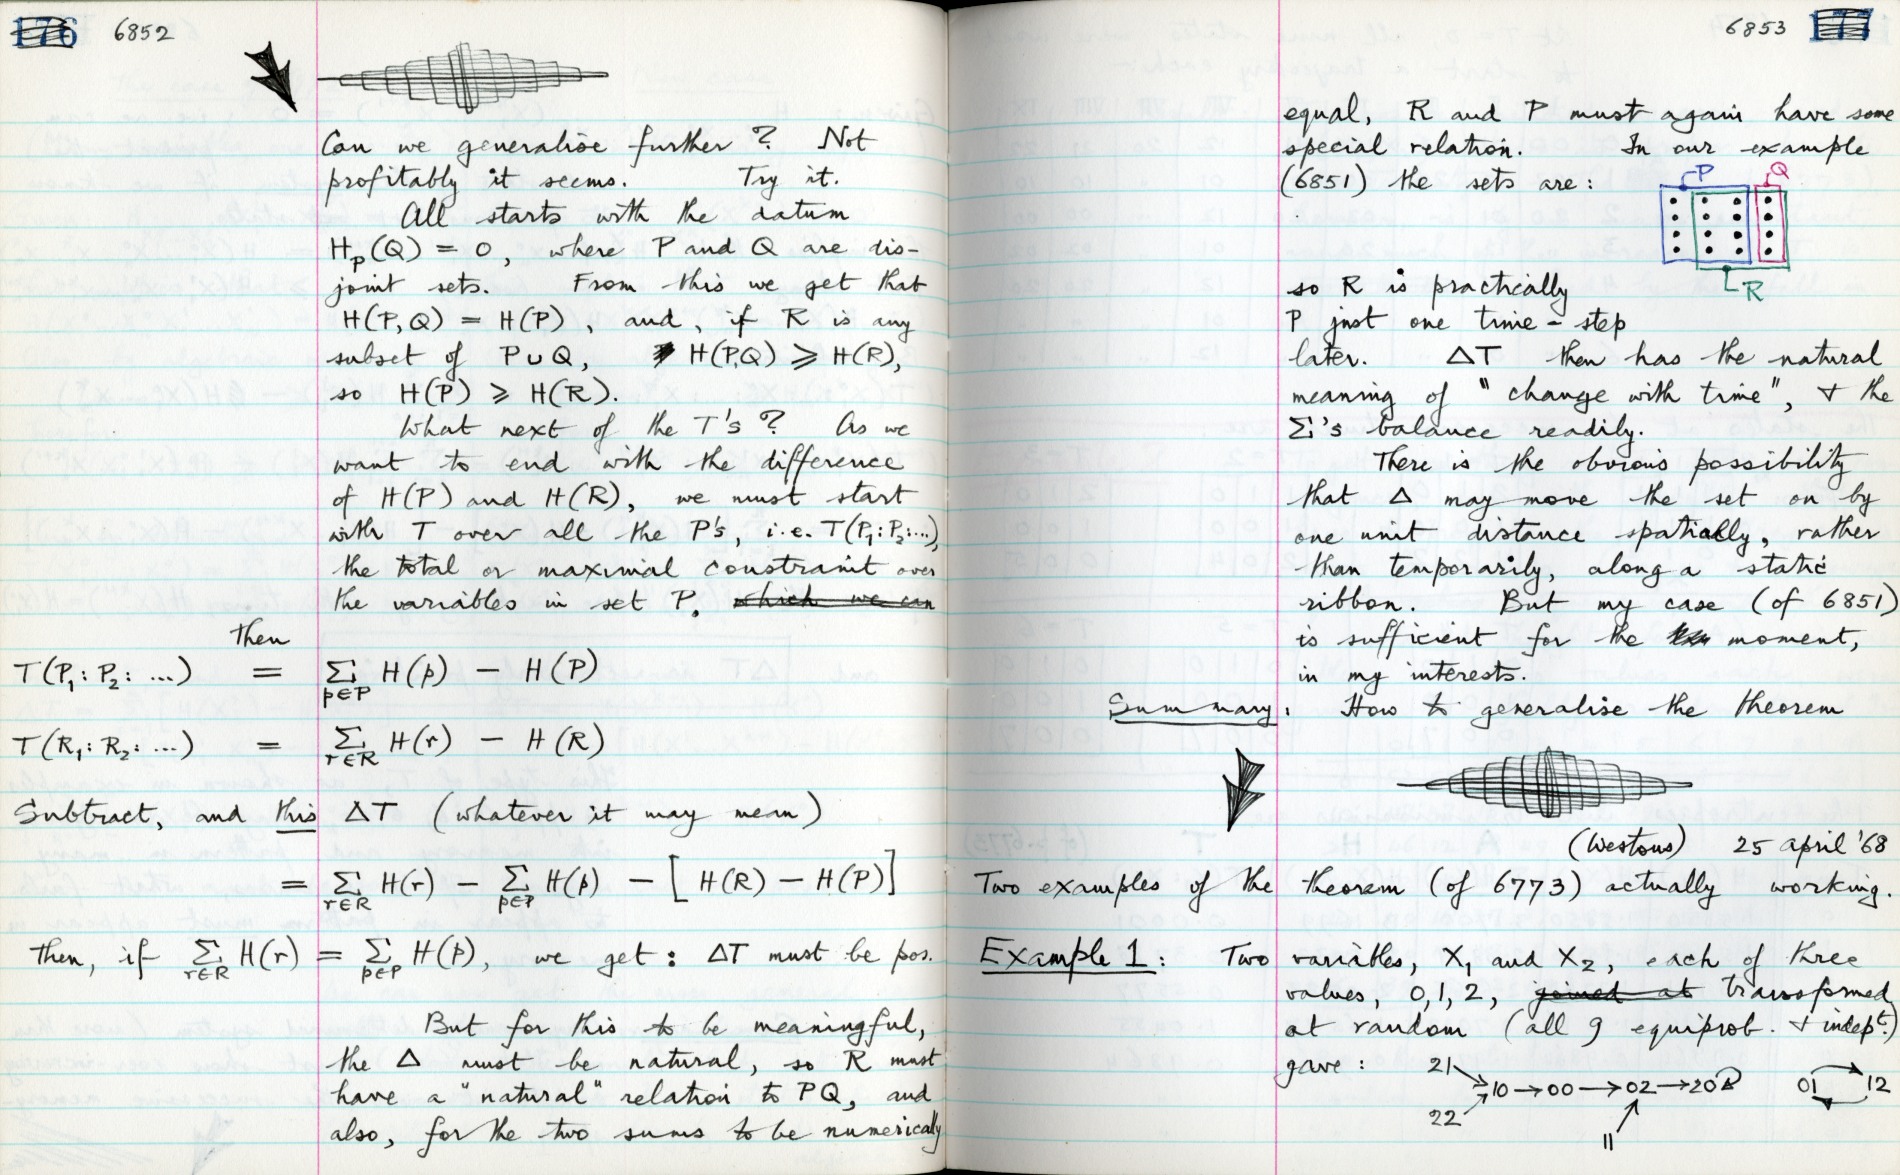 176 6852
Can we generalise further? Not
profitably it seems. Try it.
All starts with the datum
Hp(Q) = 0, where P and Q are dis-
joint sets. From this we get that
H(P,Q) = H(P), and, if R is any
subset of P∪Q, H(P,Q) ⩾ H(R),
so H(P) ⩾ H(R).
What next of the T's? As we
want to end with the difference
of H(P) and H(R), we must start
with T over all the P's, i.e. T(P₁:P₂:...),
the total or maximal constraint over
the variables in set P. which we can
then
T(P₁:P₂: ...) = Σ p∈P H(p) − H(P)
T(R₁:R₂: ...) = Σ r∈R H(r) − H(R)
Subtract, and this ΔT (whatever it may mean)
= Σ r∈R H(r) − Σ p∈P H(p) − [H(R) − H(P)]
Then, if Σ r∈R H(r) = Σ p∈P H(p), we get: ΔT must be pos.
But for this to be meaningful,
the Δ must be natural, so R must
have a "natural" relation to PQ, and
also, for the two sums to be numerically
6853 177
equal, R and P must again have some
special relation. In our example
(6851) the sets are:
P Q
R
so R is practically
P just one time-step
later. ΔT then has the natural
meaning of "change with time", & the
Σ's balance readily.
There is the obvious possibility
that Δ may move the set on by
one unit distance spatially, rather
than temporarily, along a static
ribbon. But my case (of 6851)
is sufficient for the moment,
in my interests.
Summary: How to generalise the theorem
(Westons) 25 april '68
Two examples of the theorem (of 6773) actually working.
Example 1: Two variables, X₁ and X₂, each of three
values, 0,1,2, joined at transformed
at random (all 9 equiprob. & indept.)
gave: 21
10 → 00 → 02 → 20 01 12
22
11